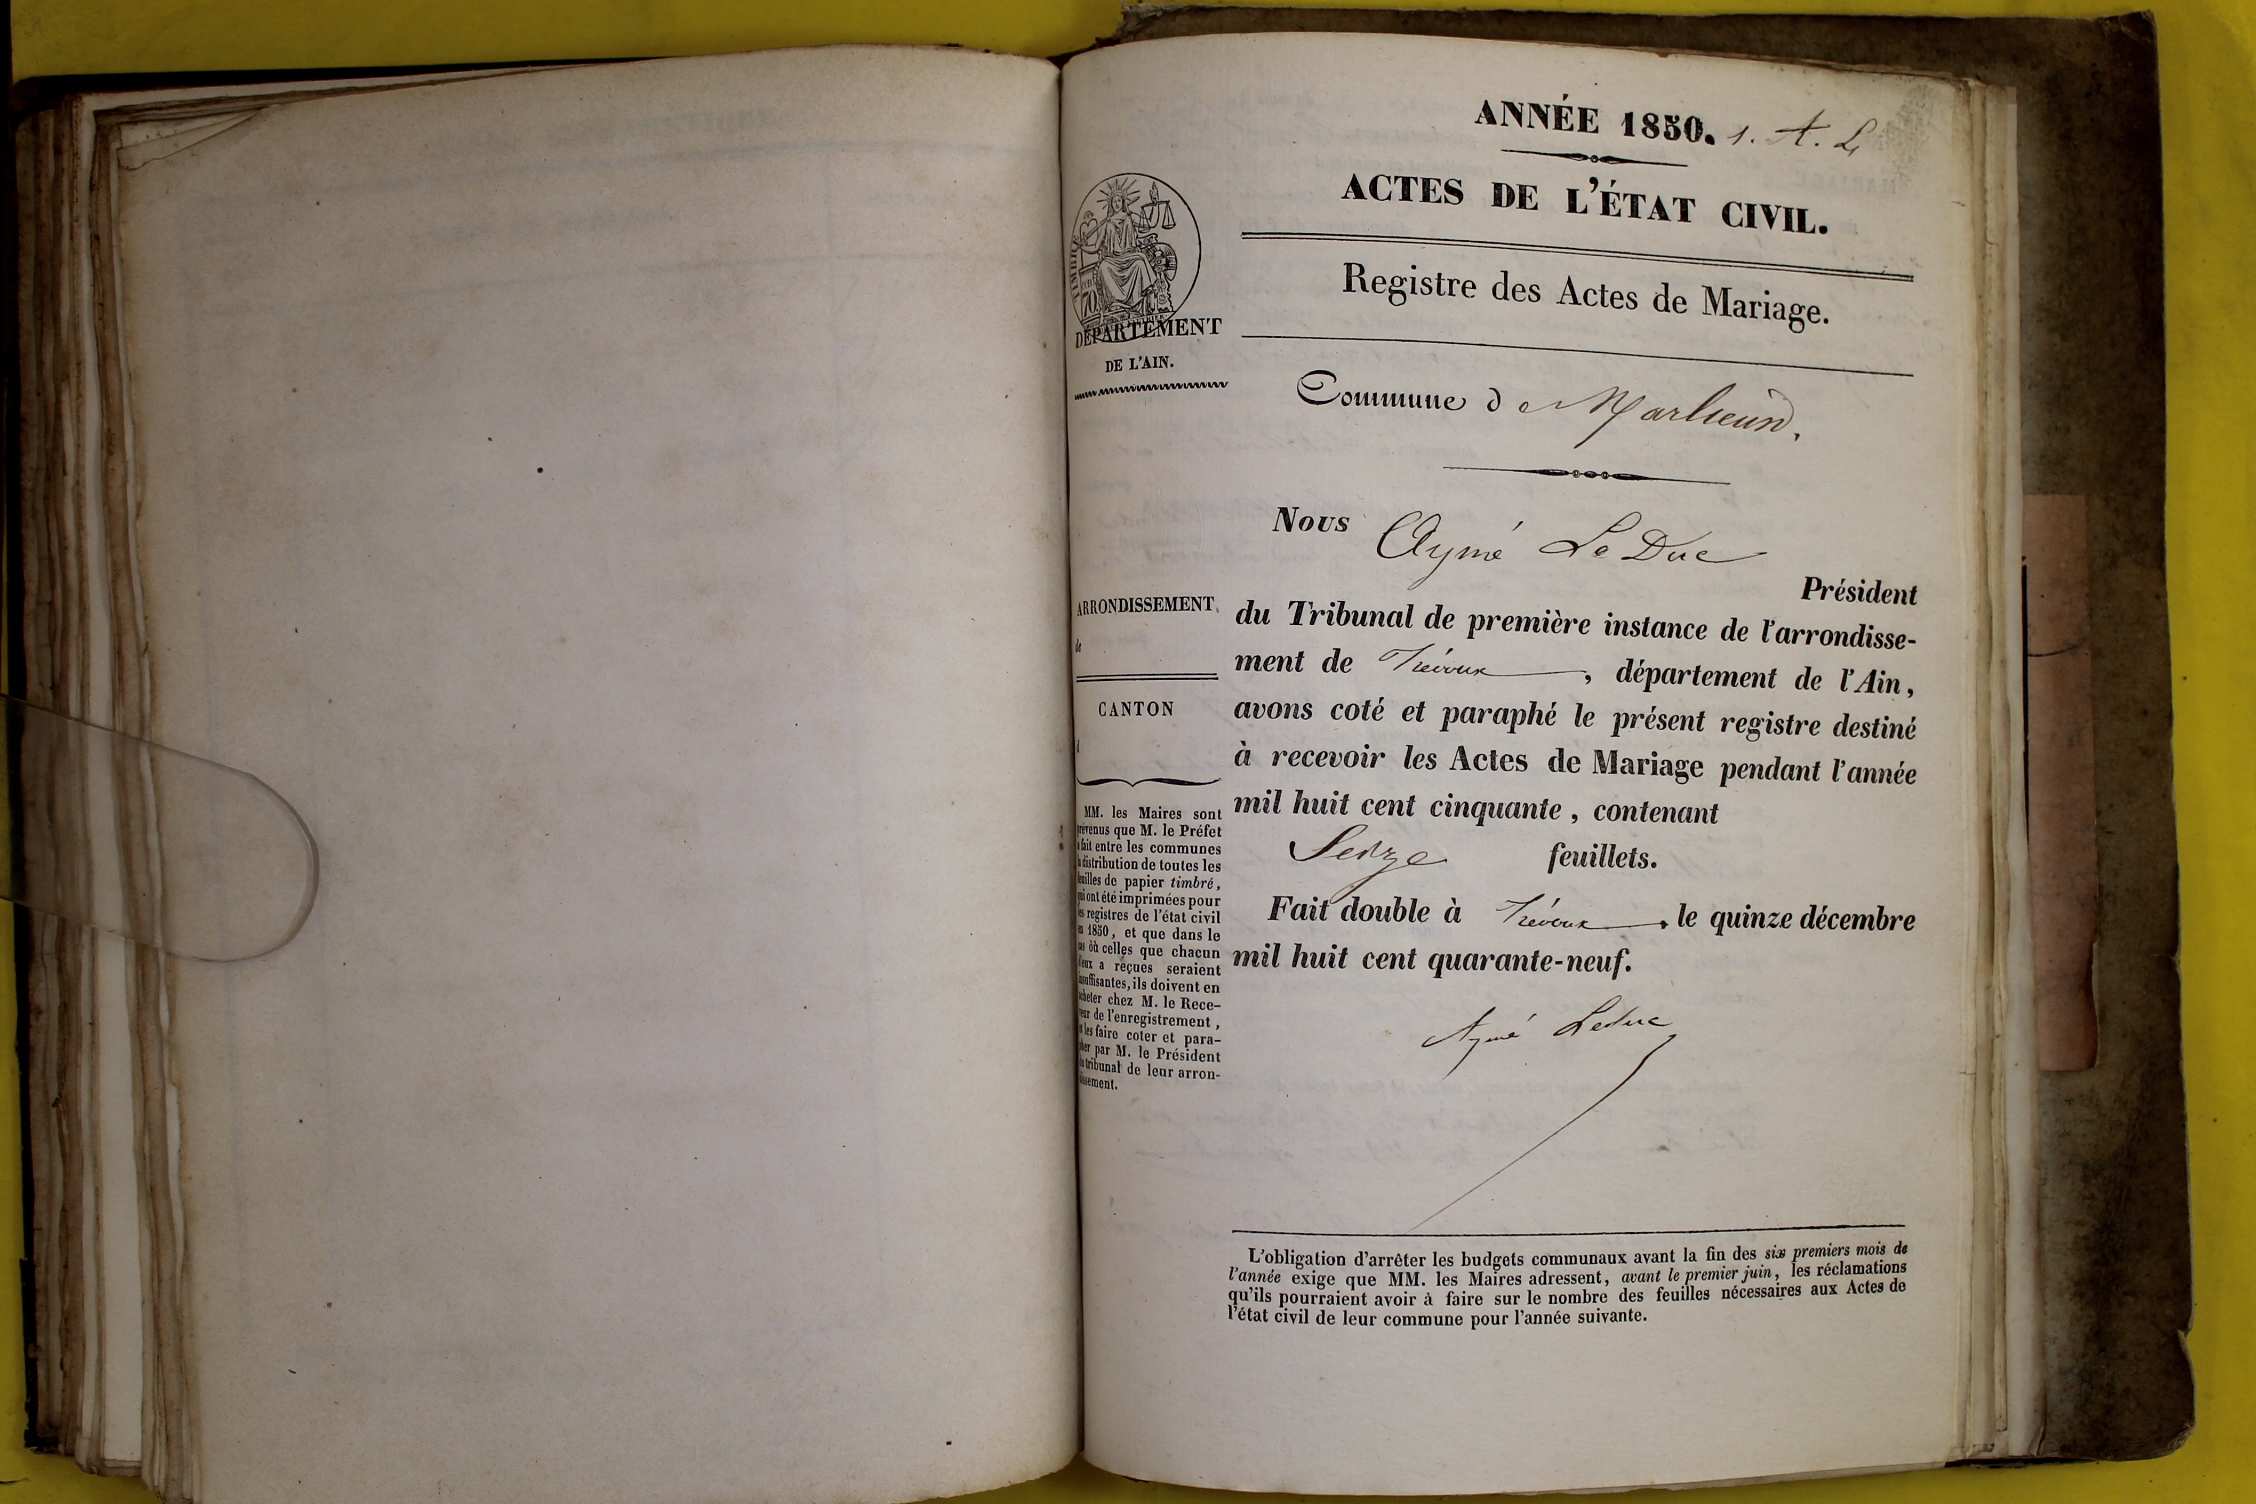 ANNÉE 1850. 1. A. L
ACTES DE L'ÉTAT CIVIL.
Registre des Actes de Mariage.
TIMBRE
70
DÉPARTEMENT
DE L'AIN.
Commune de Marlieux.
Nous Aymé Le Duc
Président
du Tribunal de première instance de l'arrondisse-
ment de Trévoux, département de l'Ain,
avons coté et paraphé le présent registre destiné
à recevoir les Actes de Mariage pendant l'année
mil huit cent cinquante, contenant
Seize feuillets.
Fait double à Trévoux, le quinze décembre
mil huit cent quarante-neuf.
Aymé Leduc
ARRONDISSEMENT
de
CANTON
d
MM. les Maires sont
prévenus que M. le Préfet
a fait entre les communes
la distribution de toutes les
feuilles de papier timbré,
qui ont été imprimées pour
les registres de l'état civil
en 1850, et que dans le
cas où celles que chacun
d'eux a reçues seraient
insuffisantes, ils doivent en
acheter chez M. le Rece-
veur de l'enregistrement,
et les faire coter et para-
pher par M. le Président
du tribunal de leur arron-
dissement.
L'obligation d'arrêter les budgets communaux avant la fin des six premiers mois de
l'année exige que MM. les Maires adressent, avant le premier juin, les réclamations
qu'ils pourraient avoir à faire sur le nombre des feuilles nécessaires aux Actes de
l'état civil de leur commune pour l'année suivante.